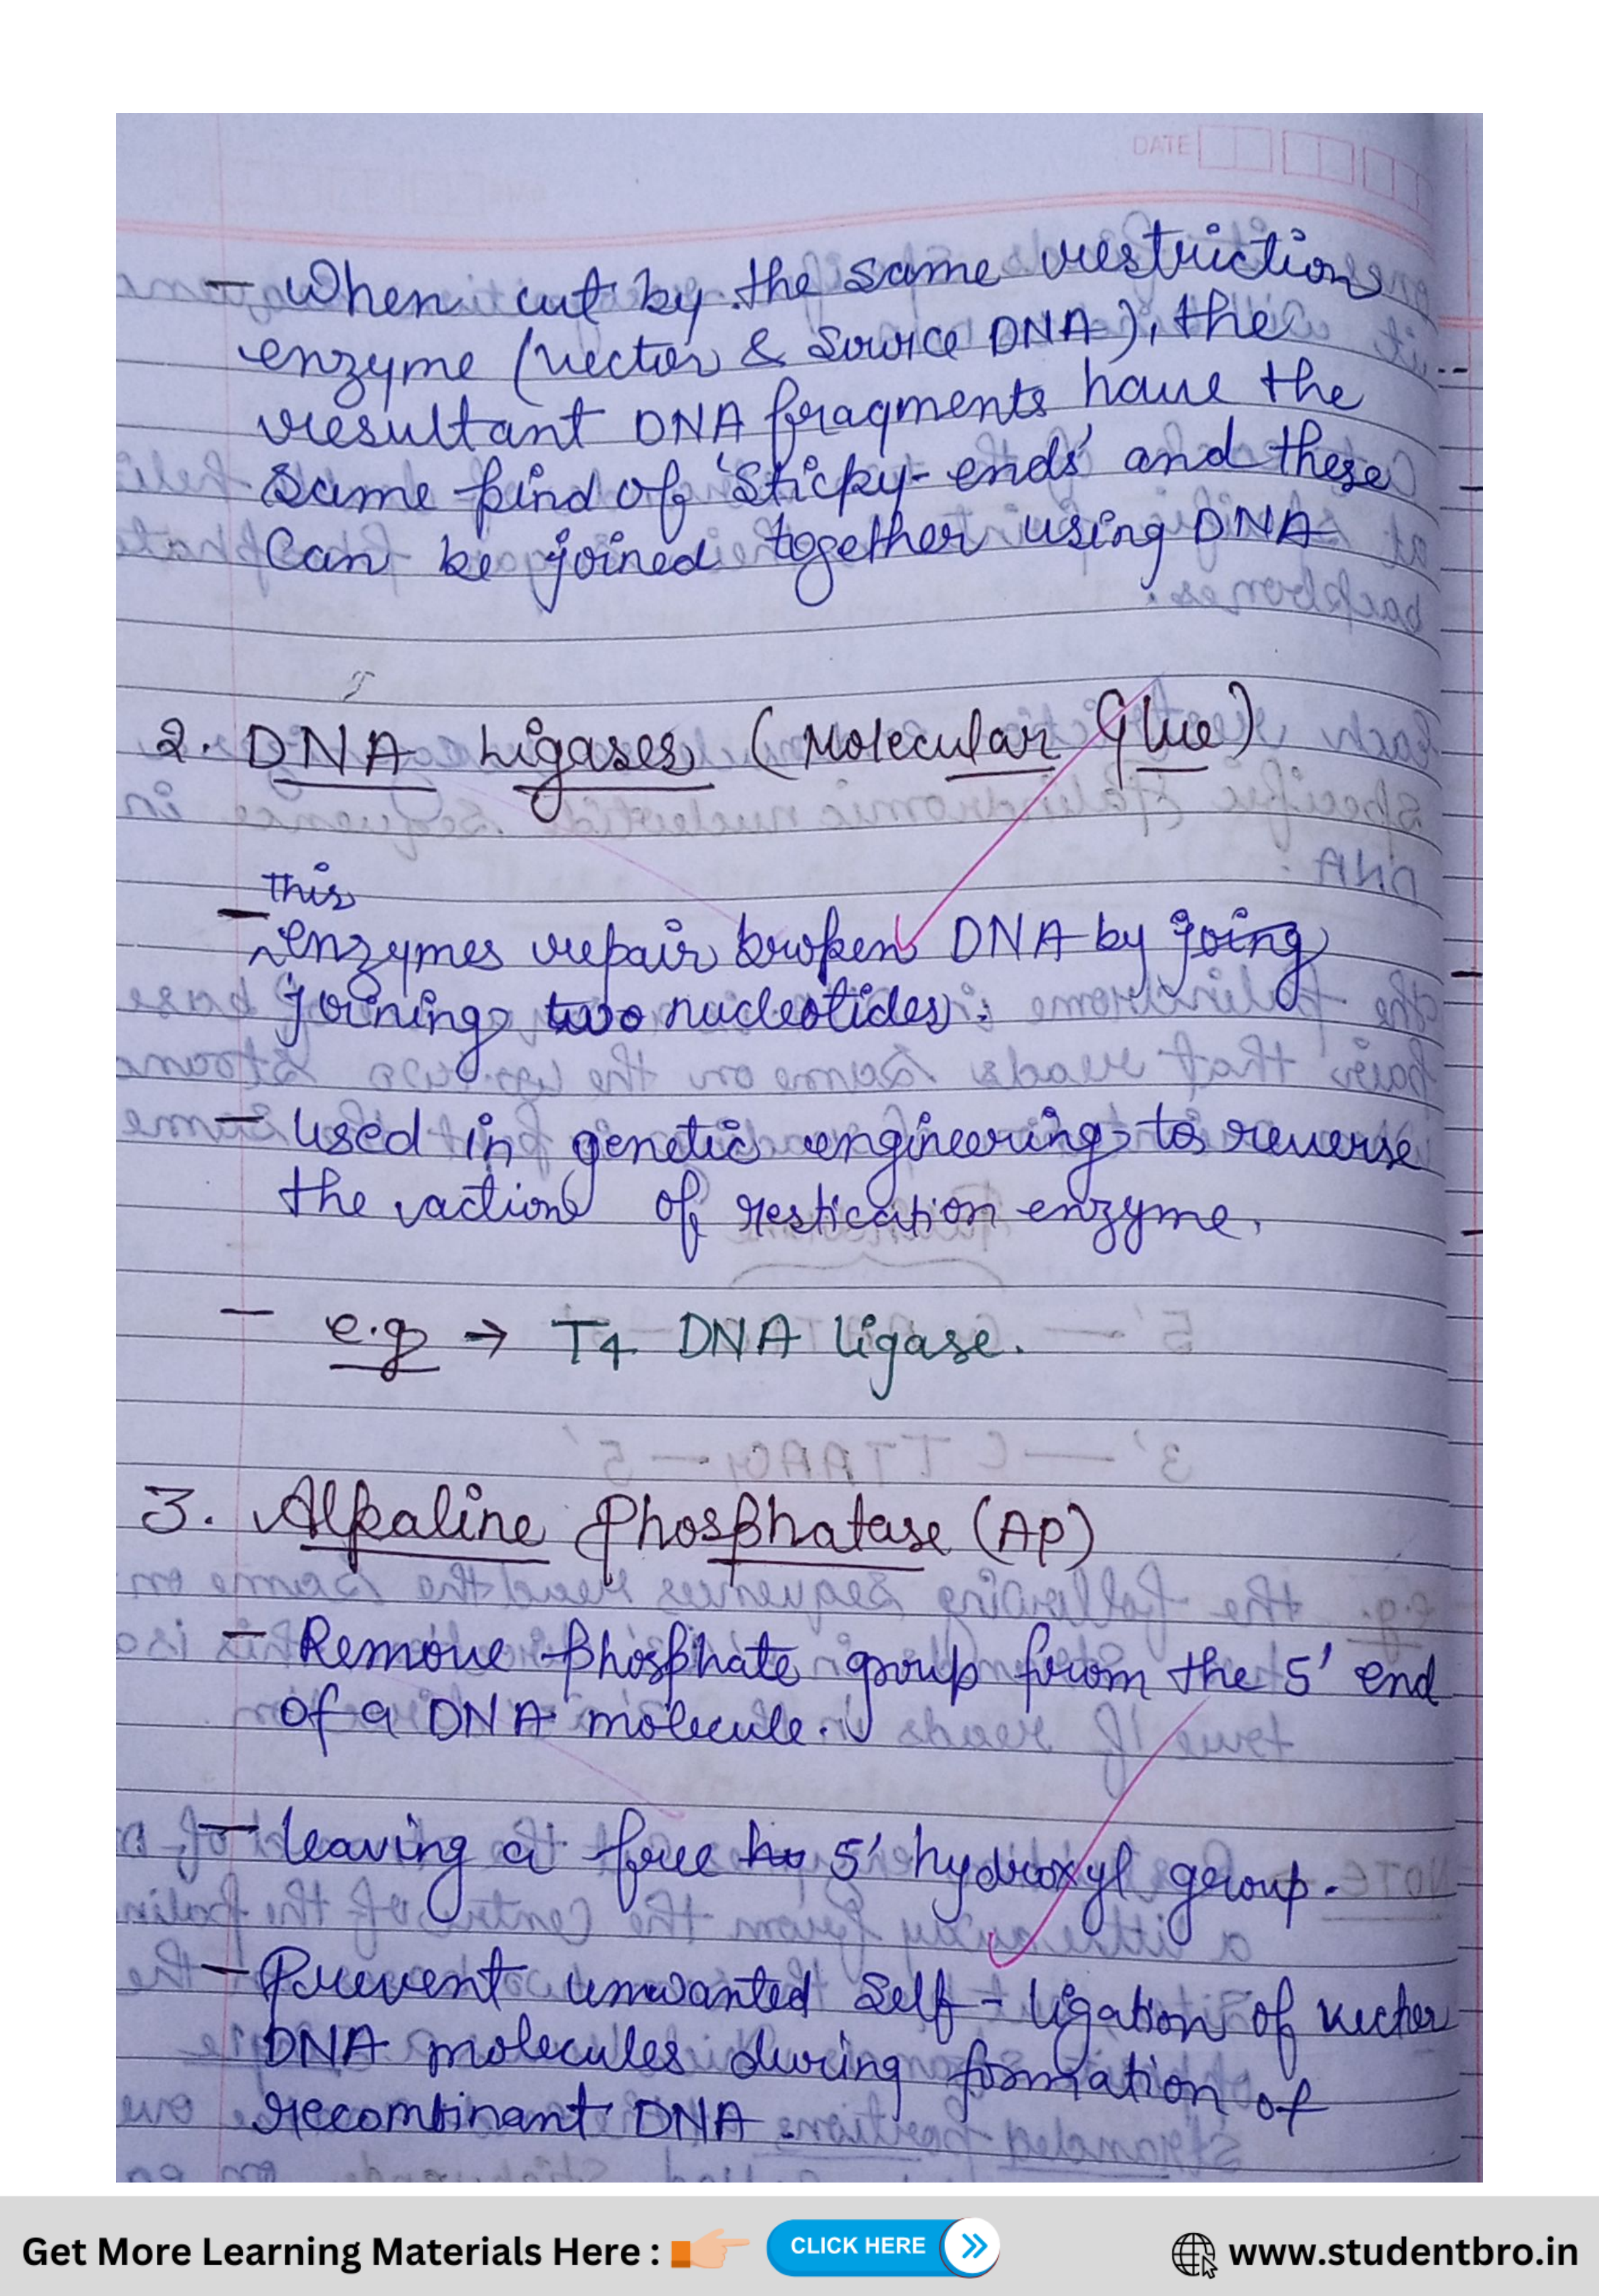 DATE
- When cut by the same restriction
enzyme (vector & Source DNA), the
resultant DNA fragments have the
Same kind of 'Sticky-ends' and these
Can be joined together using DNA
2. DNA Ligases (Molecular Glue)
this
- enzymes repair broken DNA by joing
joining two nucleotides.
- Used in genetic engineering to reverse
the action of restication enzyme.
- e.g → T4 DNA ligase.
3. Alkaline Phosphatase (AP)
- Remove phosphate group from the 5' end
of a DNA molecule.
- leaving a free ho 5' hydroxyl group.
- Prevent unwanted Self-ligation of vector
DNA molecules during formation of
recombinant DNA.
Get More Learning Materials Here :
CLICK HERE
www.studentbro.in